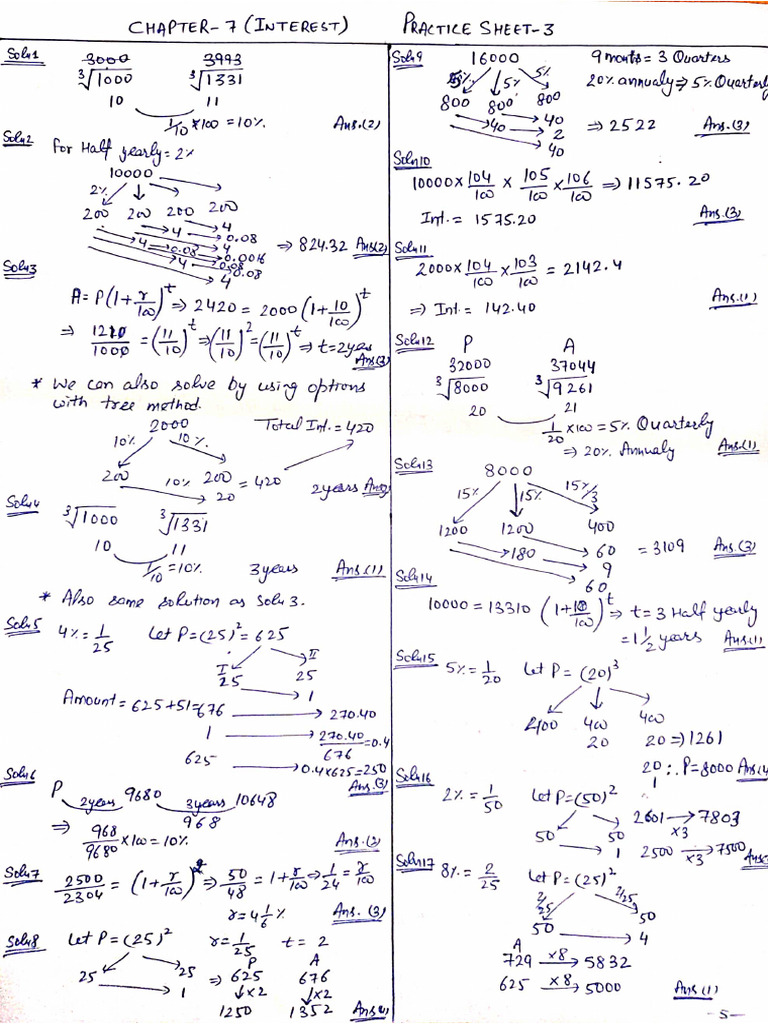 CHAPTER-7 (INTEREST) PRACTICE SHEET-3
Soln 1
3000 3993
³√1000 ³√1331
10 11
1/10 ×100 = 10% Ans.(2)
Soln 2
For Half yearly = 2%
10000
2%
200 200 200 200
4
4 0.08
4 0.08 0.0016
4 0.08
0.08
4
⇒ 824.32 Ans(2)
Soln 3
A = P(1+r/100)^t ⇒ 2420 = 2000(1+10/100)^t
⇒ 1210/1000 = (11/10)^t ⇒ (11/10)^2 = (11/10)^t ⇒ t = 2 years
Ans(3)
* We can also solve by using options
with tree method.
2000 Total Int. = 420
10% 10%
200 10% 200 = 420
20 2 years Ans
Soln 4
³√1000 ³√1331
10 11
1/10 = 10% 3 years Ans.(1)
* Also same solution as Soln 3.
Soln 5
4% = 1/25 Let P = (25)² = 625
I II
25 25
1
Amount = 625+51 = 676 → 270.40
1 → 270.40/676 = 0.4
625 → 0.4×625 = 250
Ans.(3)
Soln 6
P 2years 9680 3years 10648
968
⇒ 968/9680 ×100 = 10%
Ans.(2)
Soln 7
2500/2304 = (1+r/100)² ⇒ 50/48 = 1+r/100 ⇒ 1/24 = r/100
r = 4 1/6 % Ans. (3)
Soln 8
Let P = (25)² r = 1/25 t = 2
P A
25 25 ⇒ 625 676
1 ↓×2 ↓×2
1250 1352 Ans
Soln 9
16000 9 months = 3 Quarters
5% 5% 5% 20% annualy ⇒ 5% Quarterly
800 800 800
40
40 2 ⇒ 2522 Ans.(3)
40
Soln 10
10000 × 104/100 × 105/100 × 106/100 ⇒ 11575.20
Int. = 1575.20 Ans.(3)
Soln 11
2000 × 104/100 × 103/100 = 2142.4
⇒ Int = 142.40 Ans.(1)
Soln 12
P A
32000 37044
³√8000 ³√9261
20 21
1/20 ×100 = 5% Quarterly
⇒ 20% Annualy Ans.(1)
Soln 13
8000
15% 15% 15%/3
1200 1200 400
180 60 = 3109 Ans.(3)
9
60
Soln 14
10000 = 13310 (1+10/100)^t ⇒ t = 3 Half yearly
= 1½ years Ans(1)
Soln 15
5% = 1/20 Let P = (20)³
400 400 400
20 20 ⇒ 1261
20 ∴ P = 8000 Ans(4)
1
Soln 16
2% = 1/50 Let P = (50)²
50 50 2601 → ×3 7803
1 2500 → ×3 7500 Ans
Soln 17
8% = 2/25 Let P = (25)²
2/25 2/25
50 50
4
A
729 ×8 → 5832
625 ×8 → 5000 Ans(1)
-5-